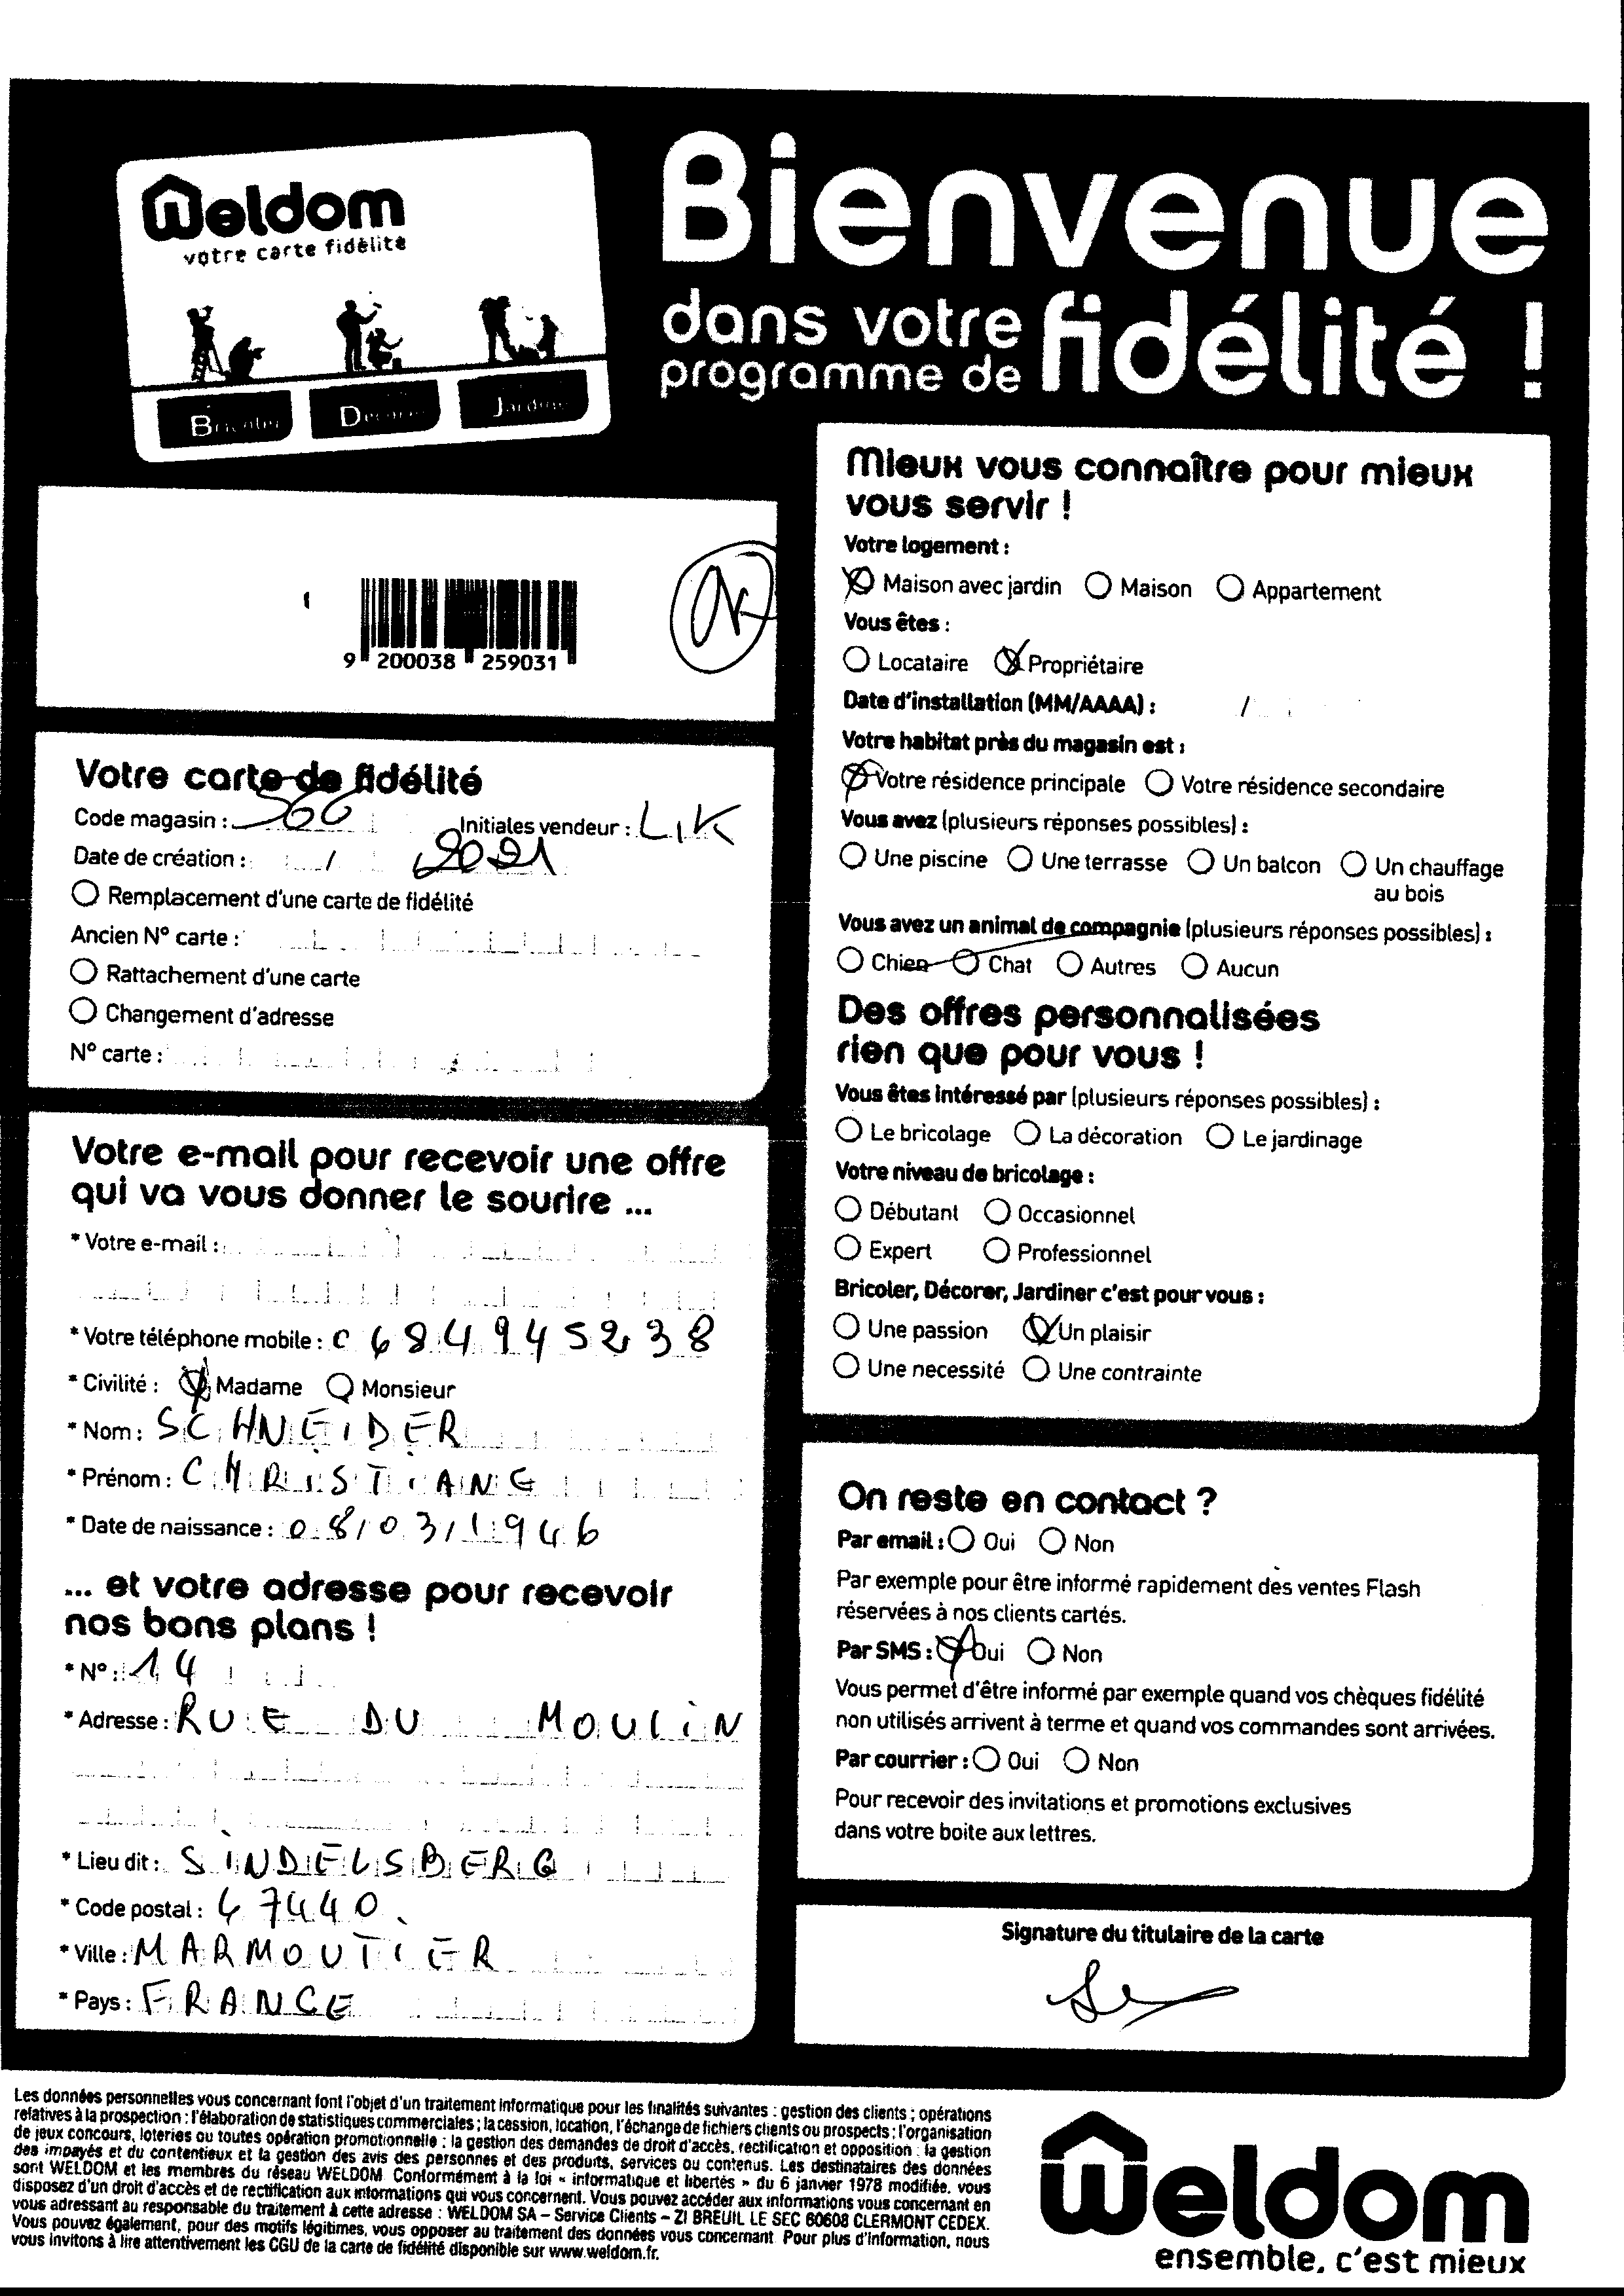 Weldom
votre carte fidélité
Bricoler Décorer Jardiner
Bienvenue
dans votre
programme de fidélité !
OK
9 200038 259031
Votre carte de fidélité
Code magasin : 566 Initiales vendeur : L.K
Date de création : / 2021
Remplacement d'une carte de fidélité
Ancien N° carte :
Rattachement d'une carte
Changement d'adresse
N° carte :
Votre e-mail pour recevoir une offre
qui va vous donner le sourire ...
* Votre e-mail :
* Votre téléphone mobile : 0684945238
* Civilité : Madame Monsieur
* Nom : SCHNEIDER
* Prénom : CHRISTIANE
* Date de naissance : 08/03/1946
... et votre adresse pour recevoir
nos bons plans !
* N° : 14
* Adresse : RUE DU MOULIN
* Lieu dit : SINDELSBERG
* Code postal : 67440
* Ville : MARMOUTIER
* Pays : FRANCE
Mieux vous connaître pour mieux
vous servir !
Votre logement :
Maison avec jardin Maison Appartement
Vous êtes :
Locataire Propriétaire
Date d'installation (MM/AAAA) : /
Votre habitat près du magasin est :
Votre résidence principale Votre résidence secondaire
Vous avez (plusieurs réponses possibles) :
Une piscine Une terrasse Un balcon Un chauffage
au bois
Vous avez un animal de compagnie (plusieurs réponses possibles) :
Chien Chat Autres Aucun
Des offres personnalisées
rien que pour vous !
Vous êtes intéressé par (plusieurs réponses possibles) :
Le bricolage La décoration Le jardinage
Votre niveau de bricolage :
Débutant Occasionnel
Expert Professionnel
Bricoler, Décorer, Jardiner c'est pour vous :
Une passion Un plaisir
Une necessité Une contrainte
On reste en contact ?
Par email : Oui Non
Par exemple pour être informé rapidement des ventes Flash
réservées à nos clients cartés.
Par SMS : Oui Non
Vous permet d'être informé par exemple quand vos chèques fidélité
non utilisés arrivent à terme et quand vos commandes sont arrivées.
Par courrier : Oui Non
Pour recevoir des invitations et promotions exclusives
dans votre boite aux lettres.
Signature du titulaire de la carte
Les données personnelles vous concernant font l'objet d'un traitement informatique pour les finalités suivantes : gestion des clients ; opérations
relatives à la prospection ; l'élaboration de statistiques commerciales ; la cession, location, l'échange de fichiers clients ou prospects ; l'organisation
de jeux concours, loteries ou toutes opération promotionnelle ; la gestion des demandes de droit d'accès, rectification et opposition ; la gestion
des impayés et du contentieux et la gestion des avis des personnes et des produits, services ou contenus. Les destinataires des données
sont WELDOM et les membres du réseau WELDOM. Conformément à la loi « informatique et libertés » du 6 janvier 1978 modifiée, vous
disposez d'un droit d'accès et de rectification aux informations qui vous concernent. Vous pouvez accéder aux informations vous concernant en
vous adressant au responsable du traitement à cette adresse : WELDOM SA – Service Clients – ZI BREUIL LE SEC 60608 CLERMONT CEDEX.
Vous pouvez également, pour des motifs légitimes, vous opposer au traitement des données vous concernant. Pour plus d'information, nous
vous invitons à lire attentivement les CGU de la carte de fidélité disponible sur www.weldom.fr.
Weldom
ensemble, c'est mieux